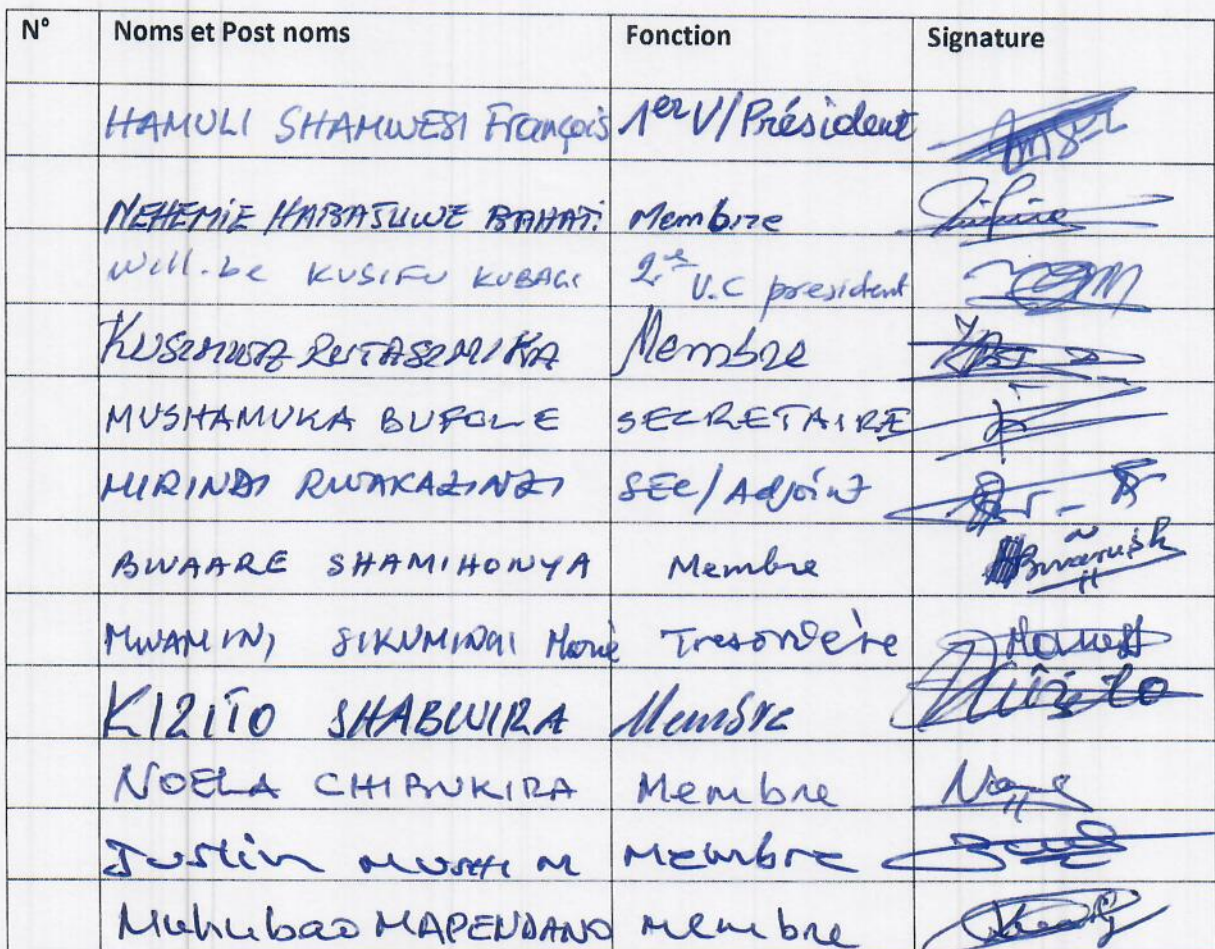 N° Noms et Post noms Fonction Signature
HAMULI SHAMWESI François 1er V/Président
NEHEMIE HABAJUWE BAHATI Membre
Will-be KUSIFU KUBAGI 2.e V.C president
Membre
MUSHAMUKA BUFOLE SECRETAIRE
MIRINDI RWAKAZINZI SEC/Adjoint
BWAARE SHAMIHONYA Membre
MWAMINI SIKUMINGI Marie Tresorière
KIZITO SHABWIRA Membre Kizito
NOELA CHIBUKIRA Membre
Justin MUSHI M Membre
Muhubao MAPENDANO membre